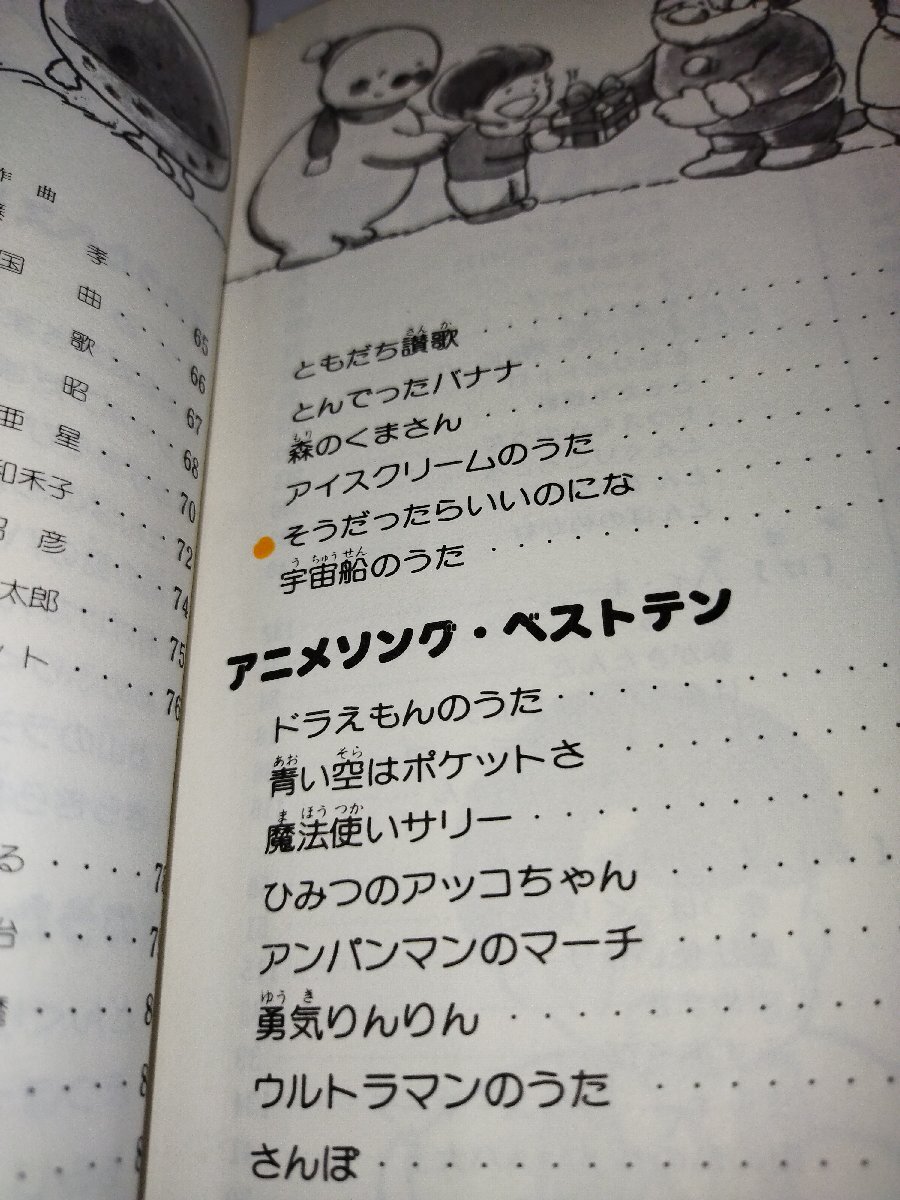 作曲
孝・・・65
国 曲・・・66
歌・・・67
昭・・・68
亜 星・・・70
和禾子・・・72
昭 彦・・・74
太郎・・・75
ット・・・76
ともだち讃歌
さん か
とんでったバナナ
森のくまさん
もり
アイスクリームのうた
そうだったらいいのにな
宇宙船のうた
う ちゅう せん
アニメソング・ベストテン
ドラえもんのうた
青い空はポケットさ
あお そら
魔法使いサリー
ま ほう つか
ひみつのアッコちゃん
アンパンマンのマーチ
勇気りんりん
ゆう き
ウルトラマンのうた
さんぽ